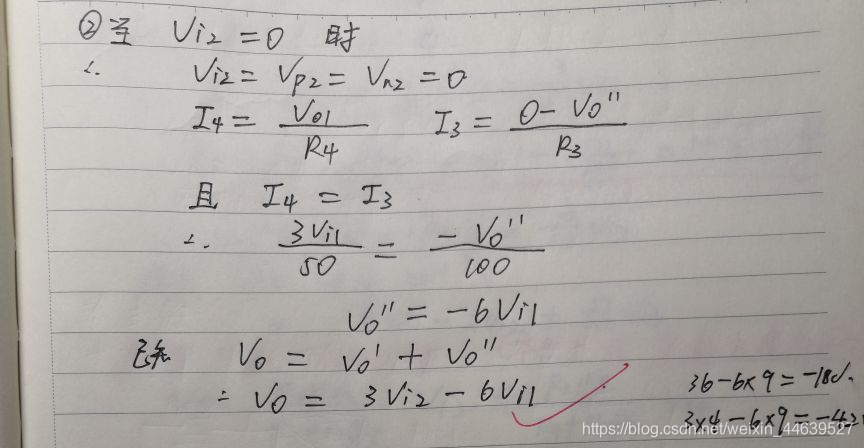 ②至 Vi2 = 0 时
∴ Vi2 = Vp2 = Vn2 = 0
I4 = Vo1 / R4    I3 = 0 - Vo'' / R3
且 I4 = I3
∴ 3Vi1 / 50 = -Vo'' / 100
Vo'' = -6Vi1
Vo = Vo' + Vo''
∴ Vo = 3Vi2 - 6Vi1
36-6×9=-18
-6×9=
https://blog.csdn.net/weixin_44639527